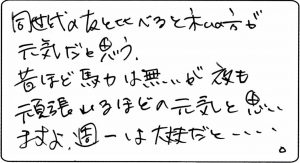 同世代の友と比べると私の方が
元気だと思う.
昔ほど馬力は無いが 夜も
頑張れるほどの元気と思い
ますよ.週一は大丈夫だと・・・・
。